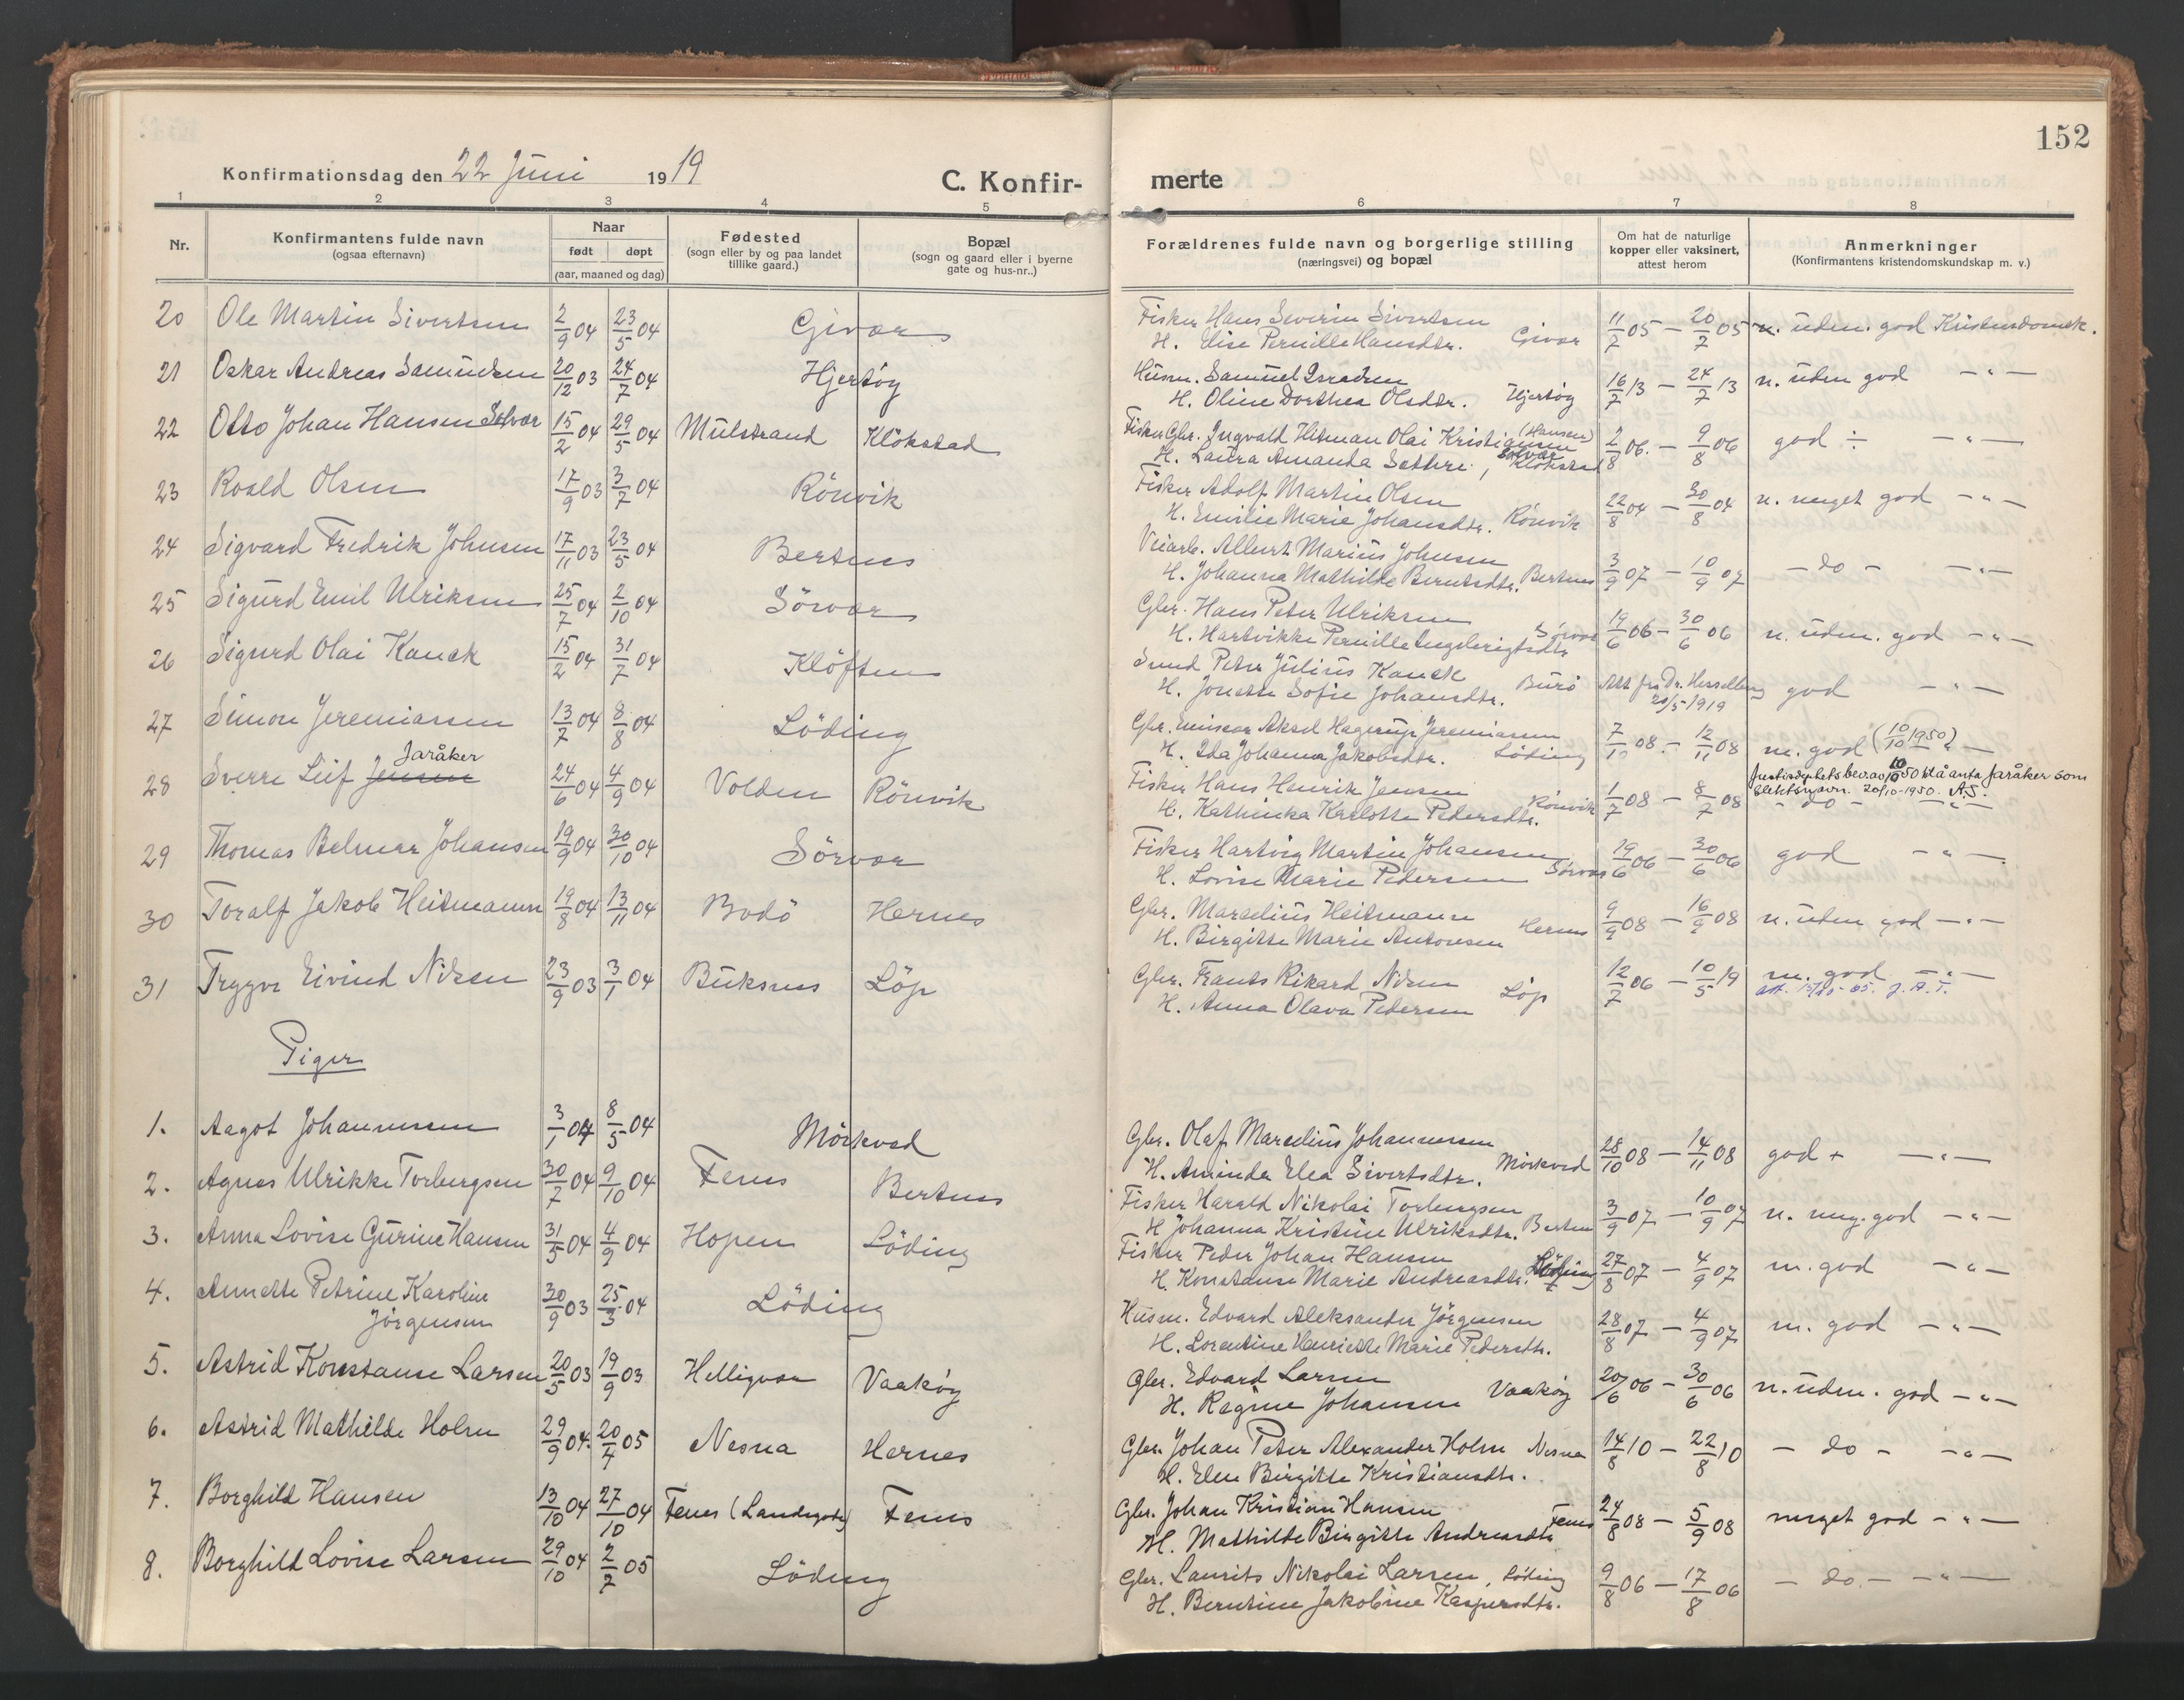 152
Konfirmationsdag den 22 Juni 1919
C. Konfir-
merte
1 2 3 4 5 6 7 8
Nr.
Konfirmantens fulde navn
(ogsaa efternavn)
Naar
født døpt
(aar, maaned og dag)
Fødested
(sogn eller by og paa landet
tillike gaard.)
Bopæl
(sogn og gaard eller i byerne
gate og hus-nr..)
Forældrenes fulde navn og borgerlige stilling
(næringsvei) og bopæl
Om hat de naturlige
kopper eller vaksinert,
attest herom
Anmerkninger
(Konfirmantens kristendomskundskap m. v.)
20 Ole Martin Sivertsen 2/9 04 23/5 04 Givær
Fisker Hans Severin Sivertsen
H. Elise Pernille Hansdtr. Givær 11/7 05 — 20/7 05 n. uden. god Kristendomsk.
21 Oskar Andreas Samuelsen 20/12 03 24/7 04 Hjertøy
Husm. Samuel Israelsen
H. Oline Dorthea Olsdtr. Hjertøy 16/7 13 — 24/7 13 n. uden god — " —
22 Otto Johan Hansen Solvær 15/2 04 29/5 04 Mulstrand Klökstad
Fisker Gbr. Ingvald Hitman Olai Kristiansen (Hansen)
H. Laura Amanda Sæthre, Solvær Klökstad 2/8 06. — 9/8 06 god ÷ — " —
23 Roald Olsen 17/9 03 3/7 04 Rönvik
Fisker Adolf Martin Olsen
H. Emilie Marie Johansdtr. Rönvik 22/8 04 — 30/8 04 n. meget god — " —
24 Sigvard Fredrik Johnsen 17/11 03 23/5 04 Bertnes
Veiarb. Albert Marius Johnsen
H. Johanna Mathilde Berntsdtr. Bertnes 3/9 07 — 10/9 07 — do — — " —
25 Sigurd Emil Ulriksen 25/7 04 2/10 04 Sörvær
Gbr. Hans Peter Ulriksen
H. Hartvikke Pernille Ingebrigtsdtr Sörvær 19/6 06 — 30/6 06 n. uden. god — " —
26 Sigurd Olai Kanck 15/2 04 31/7 04 Klöften
Smed Peter Julius Kanck
H. Jonette Sofie Johansdtr. Burö Att fra Dr. Hesselberg
20/5 1919 god — " —
27 Simon Jeremiassen 13/7 04 8/8 04 Löding
Gbr. Emissær Aksel Hagerup Jeremiassen
H. Ida Johanna Jakobsdtr. Löding 7/10 08. — 12/11 08 m. god (10/10 1950) " —
28 Sverre Leif Jensen Jaråker 24/6 04 4/9 04 Volden Rönvik
Fisker Hans Henrik Jensen
H. Kathinka Karlotte Pedersdtr. Rönvik 1/7 08 — 8/7 08 — do — — " —
Justisdeptets bev. av 10/10 50 til å anta Jaråker som
slektsnavn. 20/10-1950. A.S.
29 Thomas Belmar Johansen 19/9 04 30/10 04 Sörvær
Fisker Hartvig Martin Johansen
H. Lovise Marie Pedersen Sörvær 19/6 06 — 30/6 06 god — " —
30 Toralf Jakob Heitmann 19/8 04 13/11 04 Bodö Hernes
Gbr. Marselius Heitmann
H. Birgitte Marie Antonsen Hernes 9/9 08 — 16/9 08 n. uden god — " —
31 Trygve Eivind Nilsen 23/9 03 3/1 04 Buksnes Löp
Gbr. Frants Rikard Nilsen
H. Anna Olava Pedersen Löp 12/7 06 — 10/5 19 m. god — " —
Piger
1. Aagot Johannessen 3/1 04 8/5 04 Mörkved
Gbr. Olaf Marselius Johannessen
H. Aminda Elea Sivertsdtr. Mörkved 28/10 08 — 14/11 08 god + — " —
2. Agnes Ulrikke Torbergsen 30/7 04 9/10 04 Fenes Bertnes
Fisker Harald Nikolai Torbergsen
H. Johanna Kristine Ulriksdtr. Bertnes 3/9 07 — 10/9 07 n. meg. god — " —
3. Anna Lovise Gurine Hansen 31/5 04 4/9 04 Hopen Löding
Fisker Peder Johan Hansen
H. Konstanse Marie Andreasdtr. Löding 27/8 07 — 4/9 07 m. god — " —
4. Annette Petrine Karoline
Jörgensen 30/9 03 25/3 04 Löding
Husm. Edvard Aleksander Jörgensen
H. Lorentine Henriette Marie Pedersdtr. 28/8 07 — 4/9 07 m. god — " —
5. Astrid Konstanse Larsen 20/5 03 19/9 03 Helligvær Vaaköy
Gbr. Edvard Larsen
H. Regine Johansen Vaaköy 20/6 06 — 30/6 06 n. uden. god — " —
6. Astrid Mathilde Holm 29/9 04. 20/7 05 Nesna Hernes
Gbr. Johan Peter Alexander Holm Nesna
H. Elen Birgitte Kristiansdtr. 14/8 10 — 22/8 10 — do — — " —
7. Borghild Hansen 13/10 04 27/10 04 Fenes (Landegode) Fenes
Gbr. Johan Kristian Hansen
H. Mathilde Birgitte Andreasdtr Fenes 24/8 08 — 5/9 08 meget god — " —
8. Borghild Lovise Larsen 29/10 04 2/7 05 Löding
Gbr. Laurits Nikolai Larsen, Löding
H. Berntine Jakobine Kaspersdtr. 9/8 06 — 17/8 06 — do. — — " —